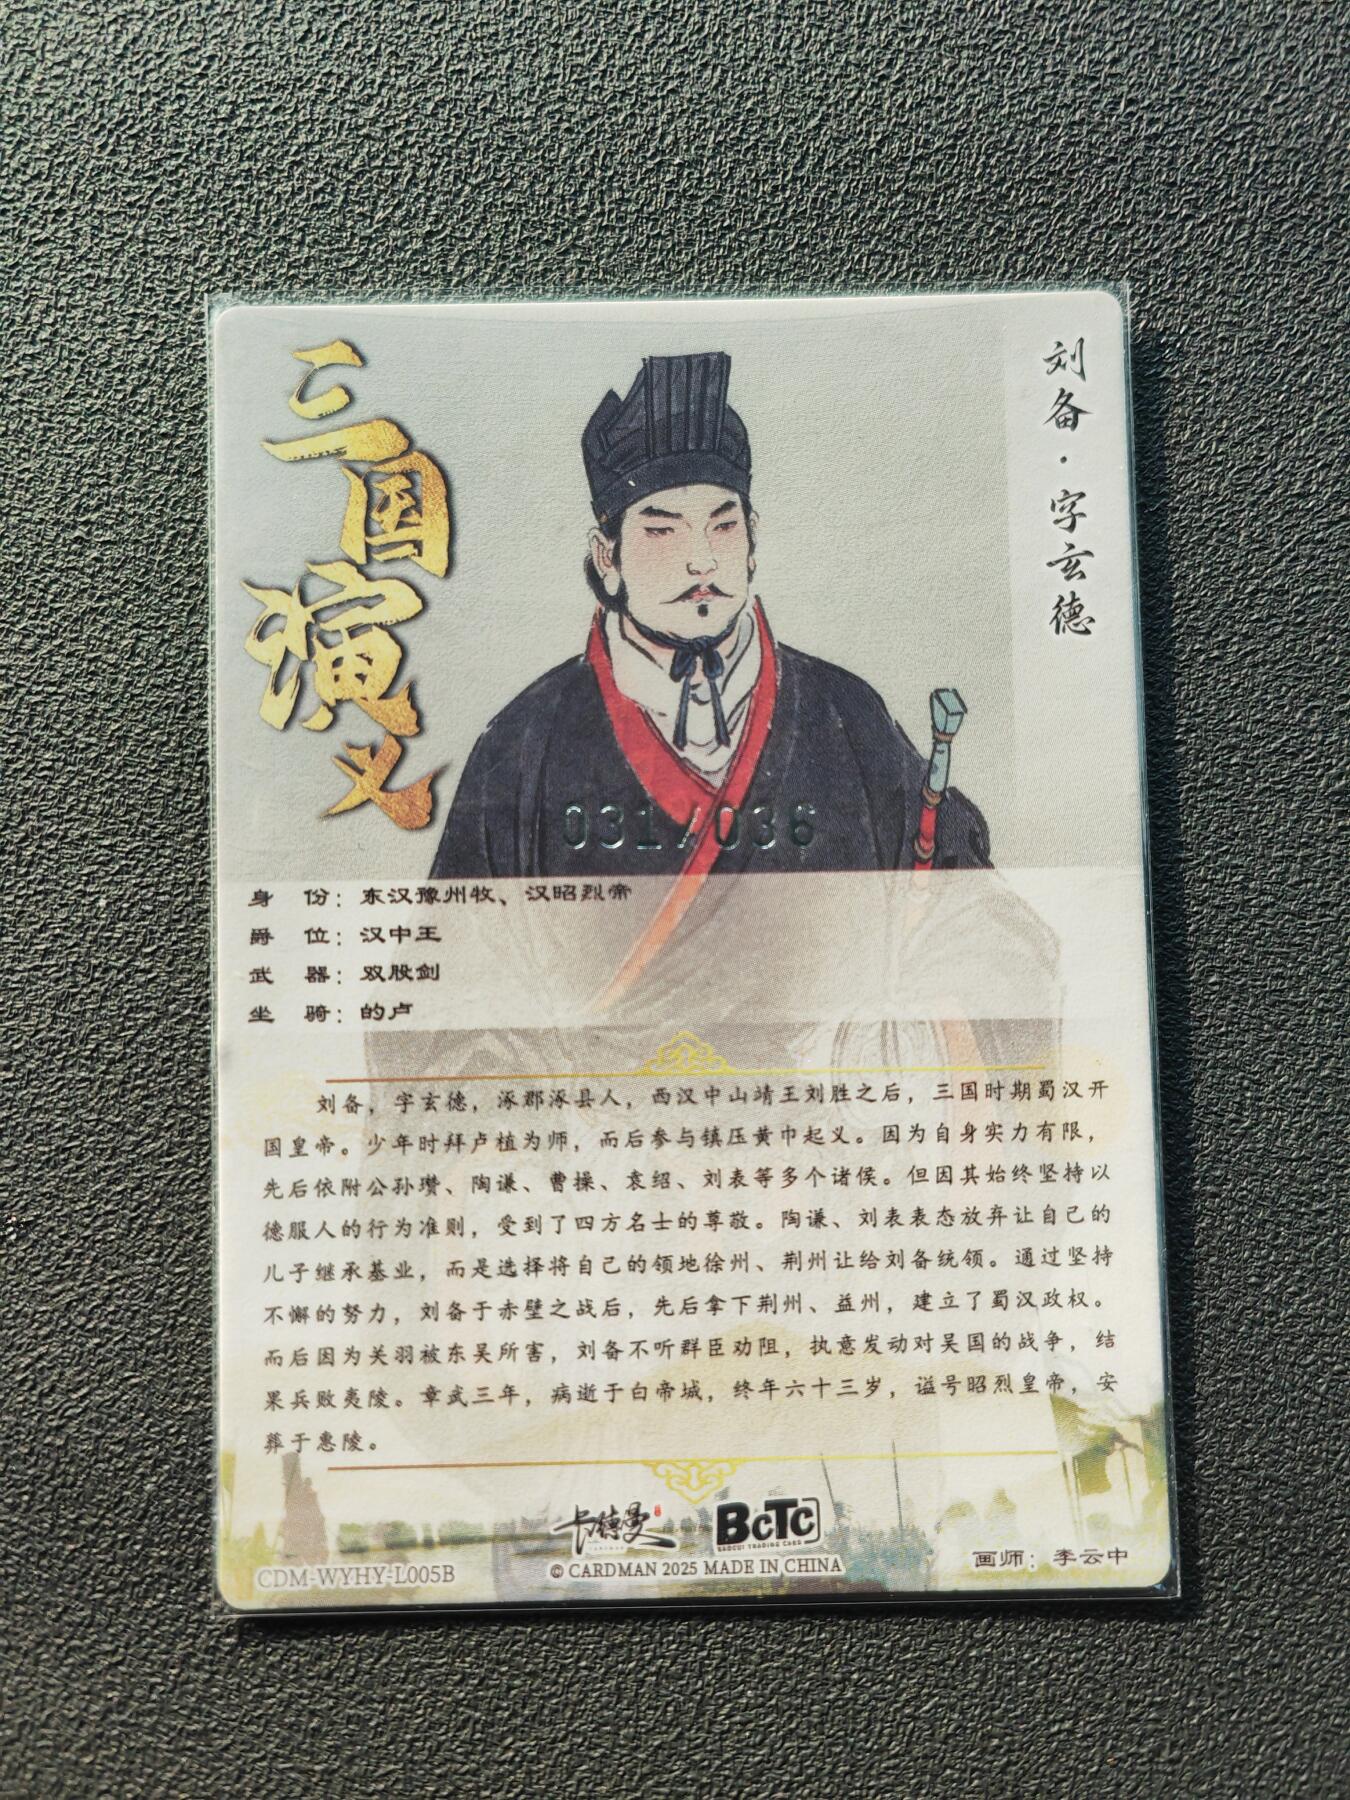 三国演义
刘备·字玄德
031/036
身 份：东汉豫州牧、汉昭烈帝
爵 位：汉中王
武 器：双股剑
坐 骑：的卢
刘备，字玄德，涿郡涿县人，西汉中山靖王刘胜之后，三国时期蜀汉开
国皇帝。少年时拜卢植为师，而后参与镇压黄巾起义。因为自身实力有限，
先后依附公孙瓒、陶谦、曹操、袁绍、刘表等多个诸侯。但因其始终坚持以
德服人的行为准则，受到了四方名士的尊敬。陶谦、刘表表态放弃让自己的
儿子继承基业，而是选择将自己的领地徐州、荆州让给刘备统领。通过坚持
不懈的努力，刘备于赤壁之战后，先后拿下荆州、益州，建立了蜀汉政权。
而后因为关羽被东吴所害，刘备不听群臣劝阻，执意发动对吴国的战争，结
果兵败夷陵。章武三年，病逝于白帝城，终年六十三岁，谥号昭烈皇帝，安
葬于惠陵。
卡德曼
BCTC
BAOCUI TRADING CARD
CDM-WYHY-L005B
© CARDMAN 2025 MADE IN CHINA
画师：李云中